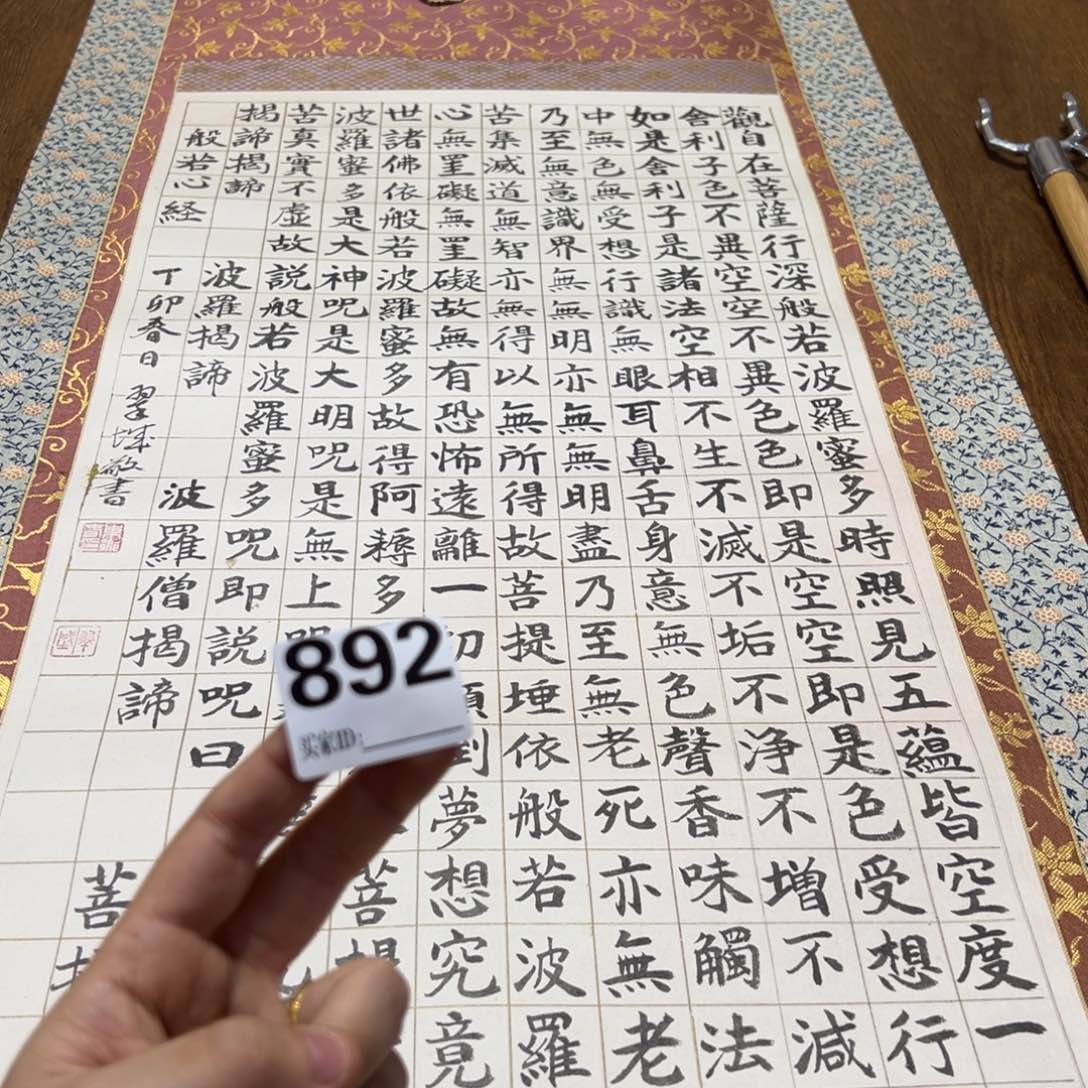 觀自在菩薩行深般若波羅蜜多時照見五蘊皆空度一
舍利子色不異空空不異色色即是空空即是色受想行
如是舍利子是諸法空相不生不滅不垢不浄不増不減
中無色無受想行識無眼耳鼻舌身意無色聲香味觸法
乃至無意識界無無明亦無無明盡乃至無老死亦無老
苦集滅道無智亦無得以無所得故菩提埵依般若波羅
心無罣礙無罣礙故無有恐怖遠離一切夢想究竟
世諸佛依般若波羅蜜多故得阿耨多菩提
波羅蜜多是大神呪是大明呪是無上呪
苦真實不虚故説般若波羅蜜多呪即説呪曰
揭諦揭諦波羅揭諦波羅僧揭諦菩
般若心経
丁卯春日翠城敬書
892
买家ID: